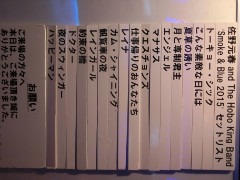 佐野元春 and The Hobo King Band
'Smoke & Blue 2015' セットリスト
トーキョー・シック
こんな素敵な日には
夏草の誘い
月と専制君主
エンジェル
マナサス
クエスチョンズ
仕事帰りのおんなたち
レイナ
カム・シャイニング
観覧車の夜
レインガール
約束の橋
ドクター
夜のスウィンガー
ハッピーマン
お願い
ご来場の方々へ
本日はご来場頂き誠に
ありがとうございました。